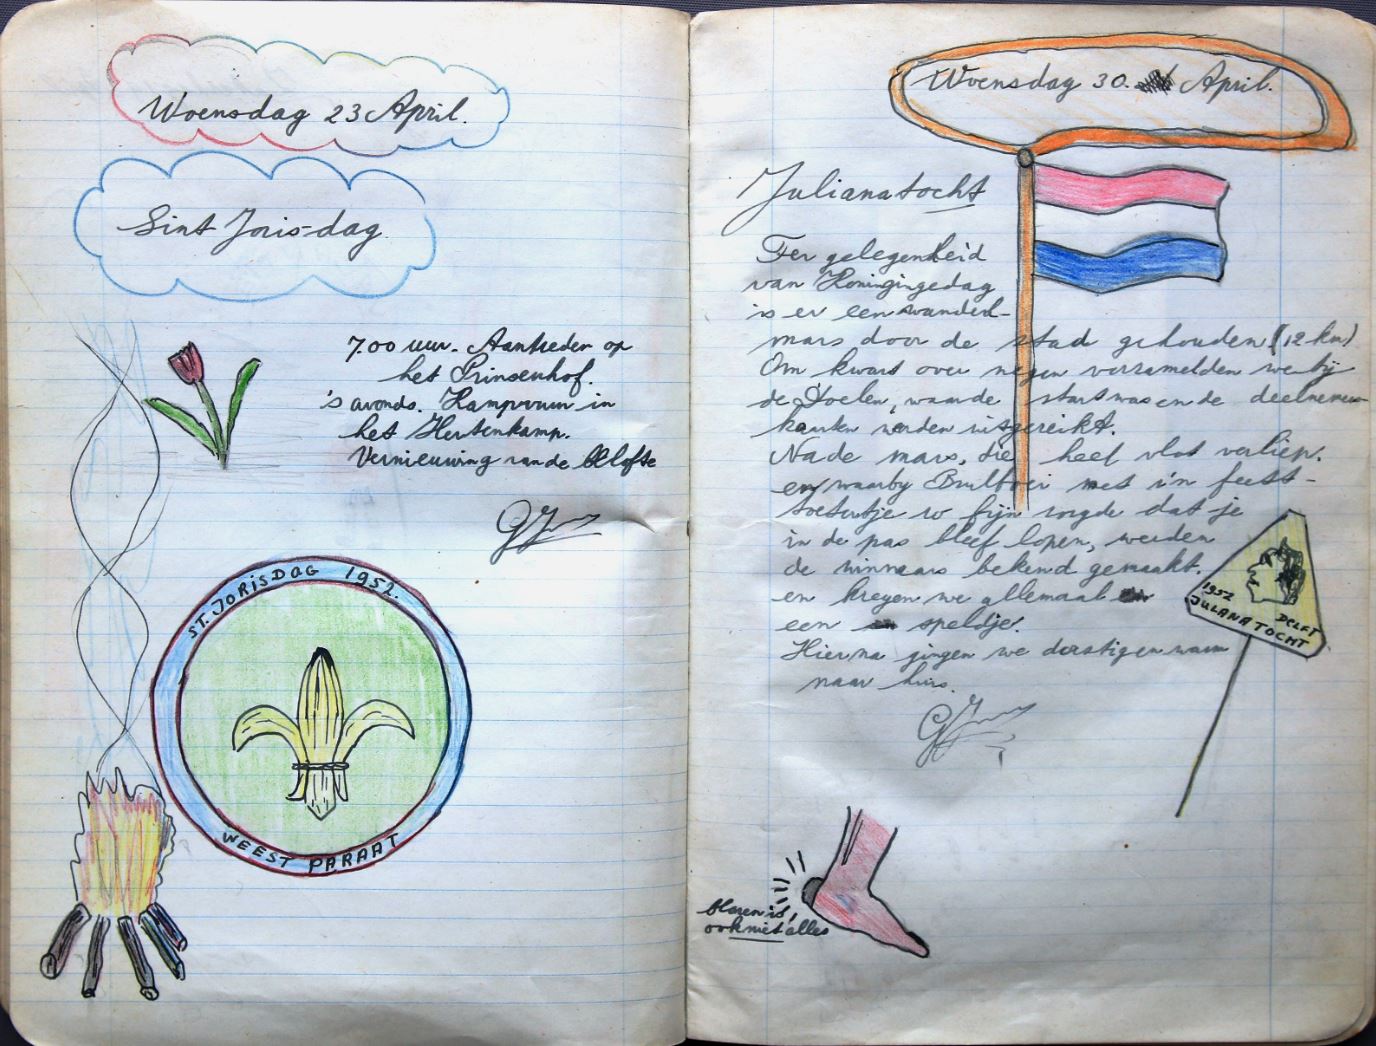 Woensdag 23 April.
Sint Joris-dag.
7.00 uur. Aantreden op
het Prinsenhof.
's avonds. Kampvuur in
het Hertenkamp.
Vernieuwing van de belofte
ST. JORISDAG 1952.
WEEST PARAAT
Woensdag 30. April.
Julianatocht
Ter gelegenheid
van Koninginnedag
is er een wandel-
mars door de stad gehouden! (12 km)
Om kwart over negen verzamelden we bij
de Doelen, waar de start was en de deelnemers-
kaarten werden uitgereikt.
Na de mars, die heel vlot verliep.
en waarby met z'n feest-
toetertje zo fijn zorgde dat je
in de pas bleef lopen, werden
de winnaars bekend gemaakt.
en kregen we allemaal
een speldje.
Hierna gingen we dorstig en warm
naar huis.
1952 DELFT
JULANA TOCHT
blaren is,
ook niet alles